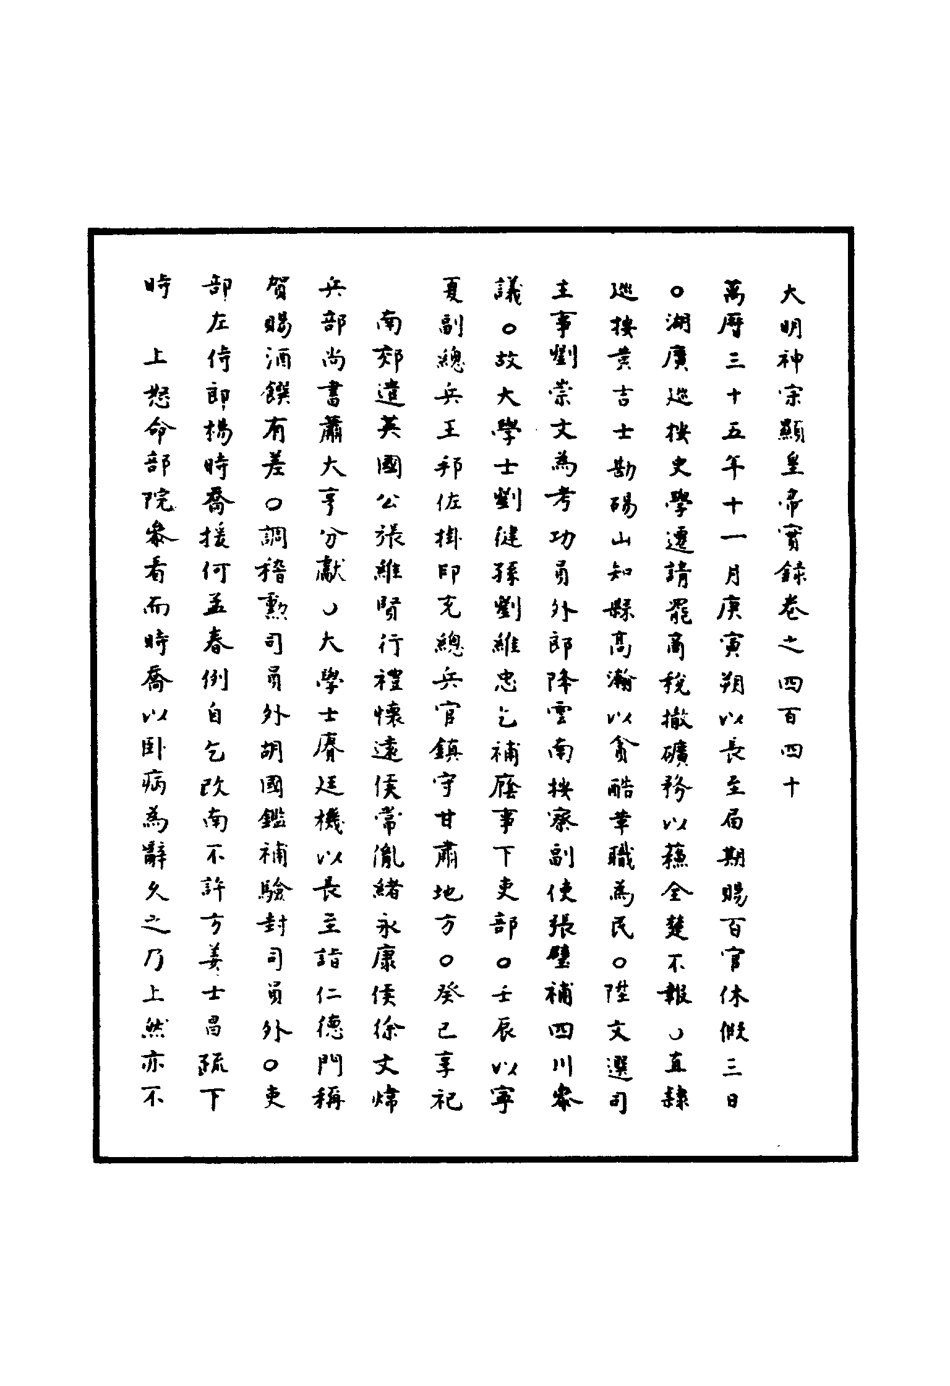 大明神宗顯皇帝實錄卷之四百四十
萬曆三十五年十一月庚寅朔以長至屆期賜百官休假三日
○湖廣巡按史學遷請罷商稅撤礦務以蘓全楚不報○直隸
巡按黄吉士劾碭山知縣高瀚以貪酷革職為民○陞文選司
主事劉崇文為考功員外郎降雲南按察副使張璧補四川叅
議○故大學士劉健孫劉維忠乞補廕事下吏部○壬辰以寧
夏副總兵王邦佐掛印充總兵官鎮守甘肅地方○癸巳享祀
南郊遣英國公張維賢行禮懷遠侯常胤緒永康侯徐文煒
兵部尚書蕭大亨分獻○大學士賡廷機以長至詣仁德門稱
賀賜酒饌有差○調稽勲司員外胡國鑑補驗封司員外○吏
部左侍郎楊時喬援何孟春例自乞改南不許方姜士昌疏下
時　上怒命部院叅看而時喬以卧病為辭久之乃上然亦不